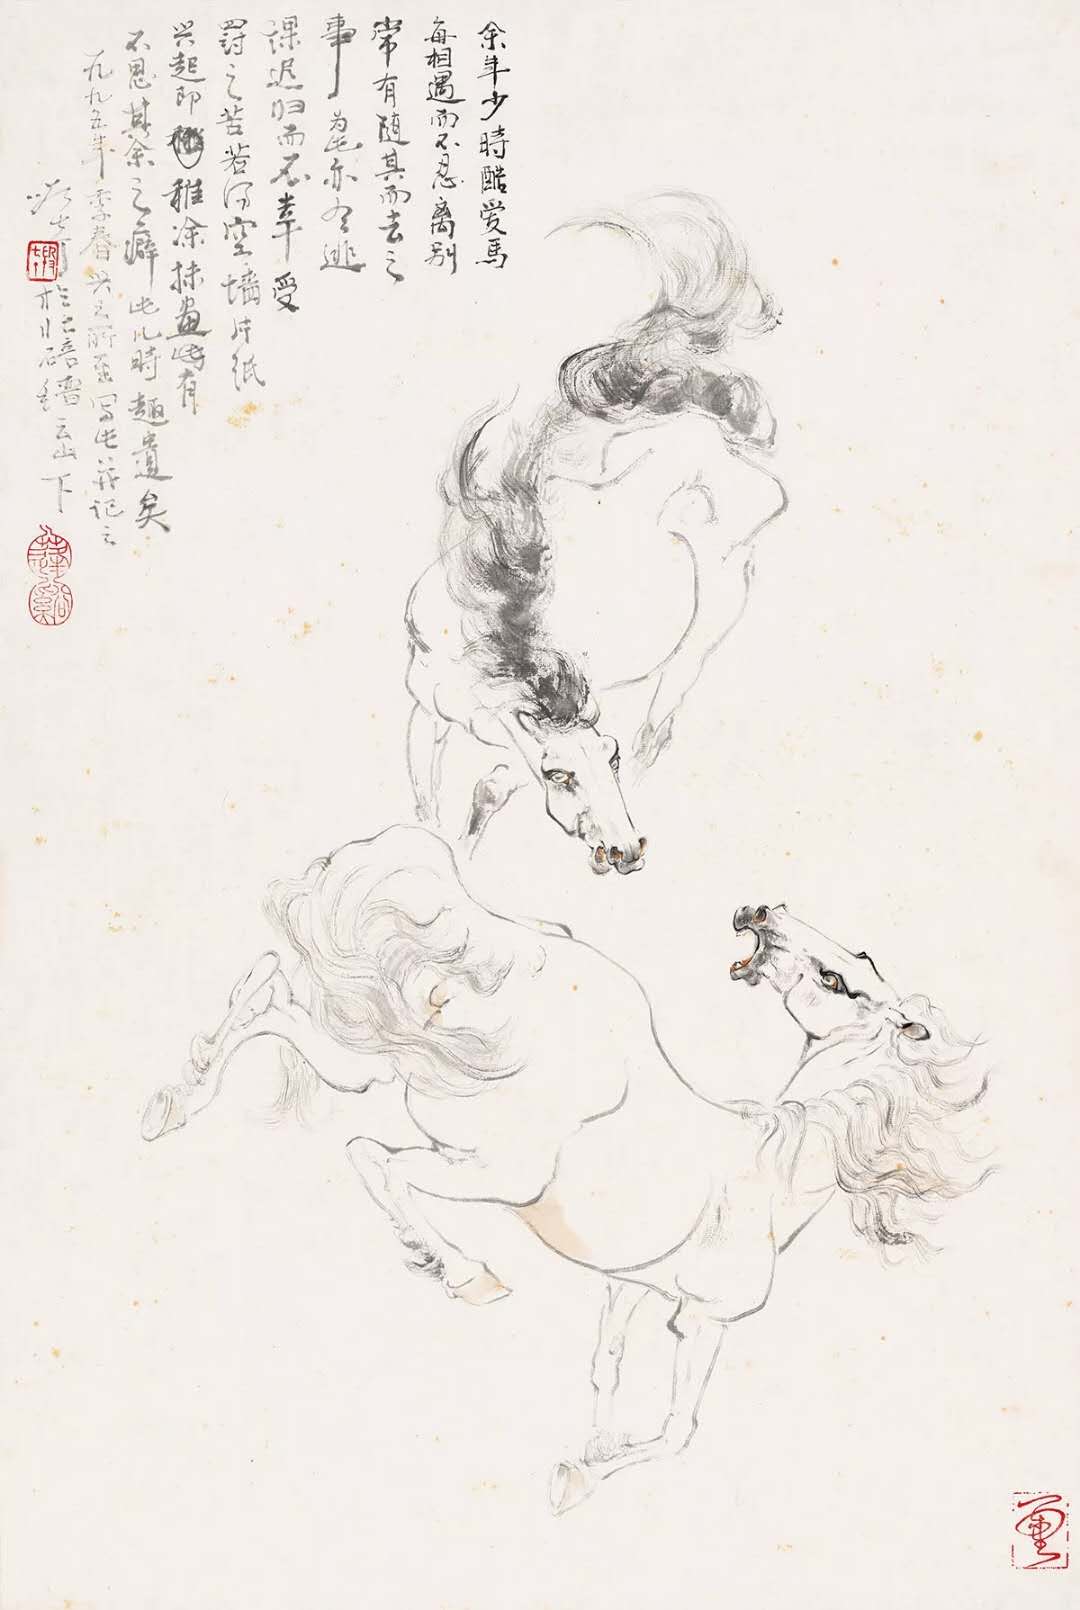 余年少時酷爱馬
每相遇而不忍离别
常有随其而去之
事为此亦有逃
课迟归而不幸受
罸之苦若得空墙片纸
兴起即稚涂抹畫時有
不思其余之癖此儿時趣遺矣
一九九五年季春兴之所至写此并记之
於 碚晋云山下